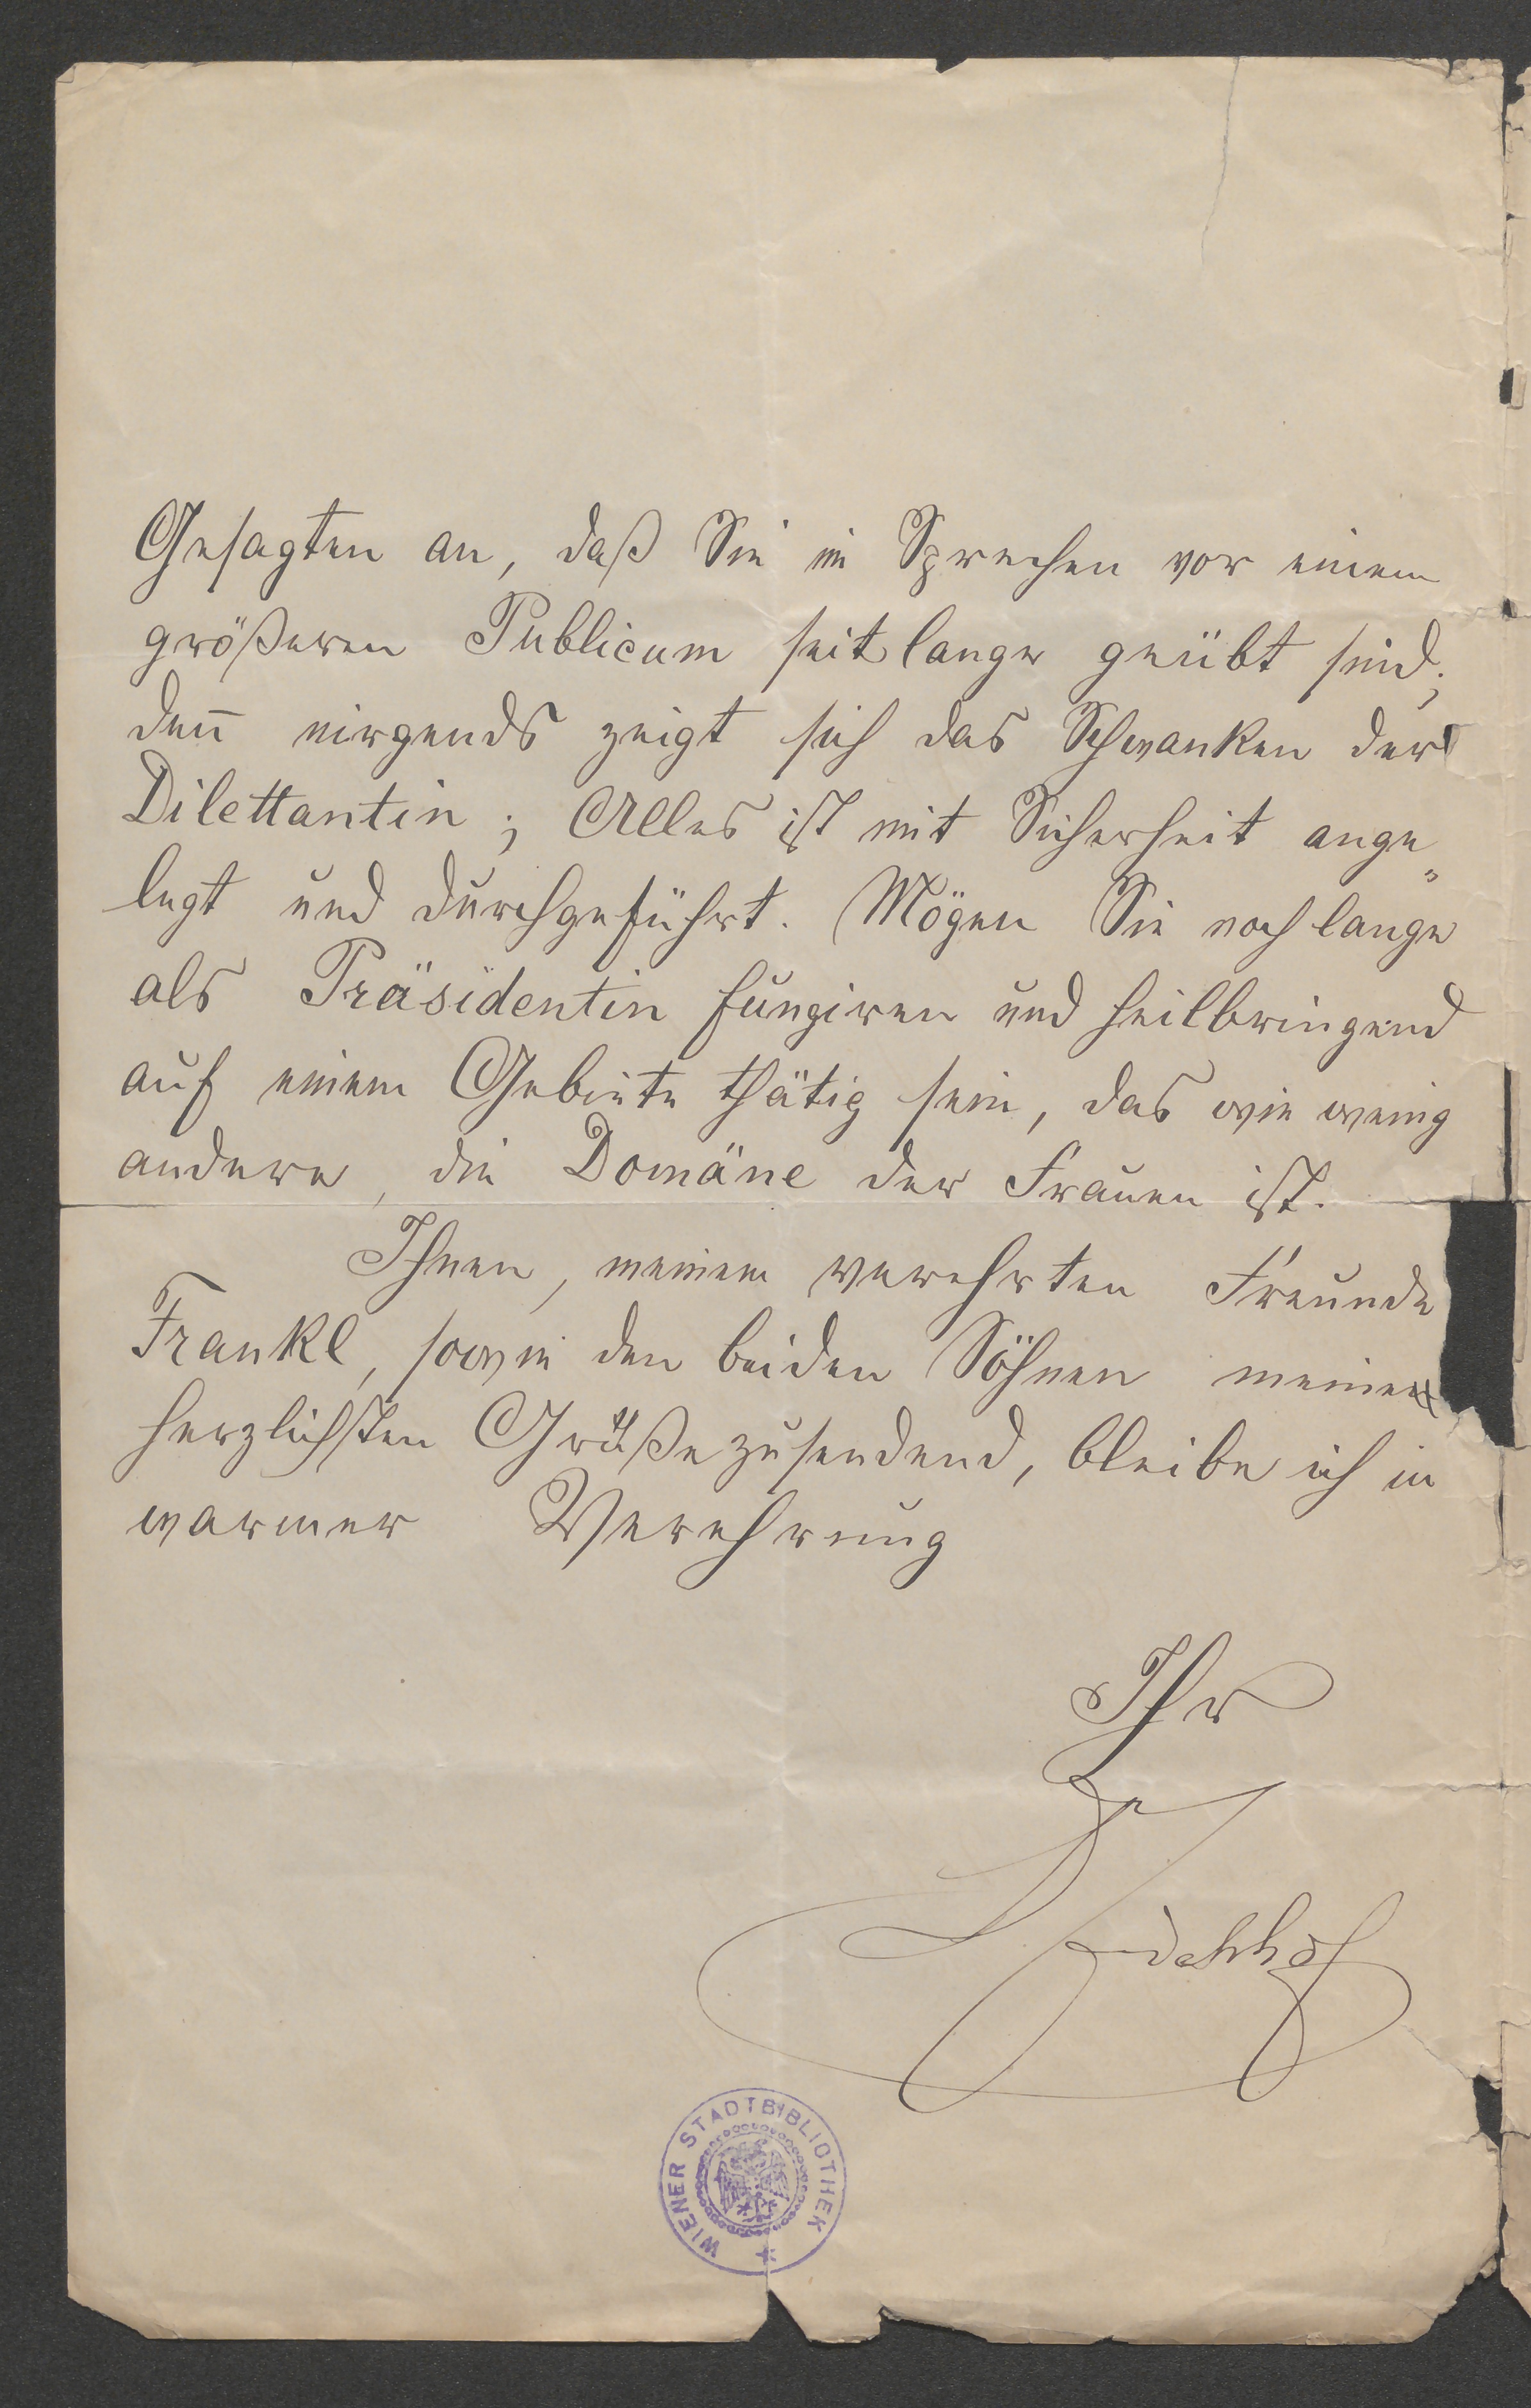 Gesagten an, daß Sie im Sprechen vor einem
größeren Publicum seit lange geübt sind;
den̅ nirgends zeigt sich das Schwanken der
Dilettantin; Alles ist mit Sicherheit ange„
legt und durchgeführt. Mögen Sie noch lange
als Präsidentin fungiren und heilbringend
auf einem Gebiete thätig sein, das wie wenig
andere, die Domäne der Frauen ist.
Ihnen, meinem verehrten Freunde
Frankl, sowie den beiden Söhnen meine
herzlichsten Grüße zusendend, bleibe ich in
warmer Verehrung
Ihr
WIENER STADTBIBLIOTHEK *